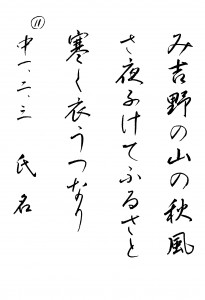 み吉野の山の秋風
さ夜ふけてふるさと
寒く衣うつなり
⑪
中一、二、三 氏名